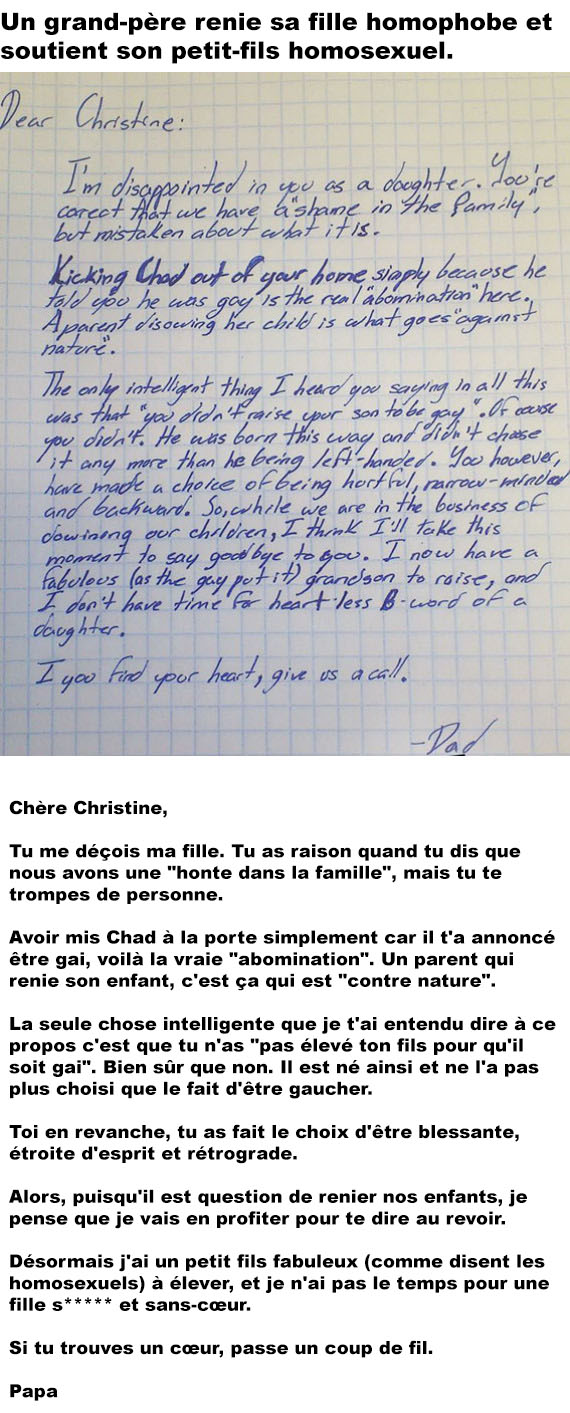 Un grand-père renie sa fille homophobe et
soutient son petit-fils homosexuel.
Dear Christine:
I'm disappointed in you as a daughter. You're
corect that we have a "shame in the family",
but mistaken about what it is.
Kicking Chad out of your home simply because he
told you he was gay is the real "abomination" here.
A parent disowing her child is what goes "against
nature".
The only intelligent thing I heard you saying in all this
was that "you didn't raise your son to be gay". Of course
you didn't. He was born this way and didn't choose
it any more than he being left-handed. You however,
have made a choice of being hurtful, narrow-minded
and backward. So, while we are in the business of
disowning our children, I think I'll take this
moment to say goodbye to you. I now have a
fabulous (as the gay put it) grandson to raise, and
I don't have time for heart-less B-word of a
daughter.
I you find your heart, give us a call.
-Dad
Chère Christine,
Tu me déçois ma fille. Tu as raison quand tu dis que
nous avons une "honte dans la famille", mais tu te
trompes de personne.
Avoir mis Chad à la porte simplement car il t'a annoncé
être gai, voilà la vraie "abomination". Un parent qui
renie son enfant, c'est ça qui est "contre nature".
La seule chose intelligente que je t'ai entendu dire à ce
propos c'est que tu n'as "pas élevé ton fils pour qu'il
soit gai". Bien sûr que non. Il est né ainsi et ne l'a pas
plus choisi que le fait d'être gaucher.
Toi en revanche, tu as fait le choix d'être blessante,
étroite d'esprit et rétrograde.
Alors, puisqu'il est question de renier nos enfants, je
pense que je vais en profiter pour te dire au revoir.
Désormais j'ai un petit fils fabuleux (comme disent les
homosexuels) à élever, et je n'ai pas le temps pour une
fille s***** et sans-cœur.
Si tu trouves un cœur, passe un coup de fil.
Papa